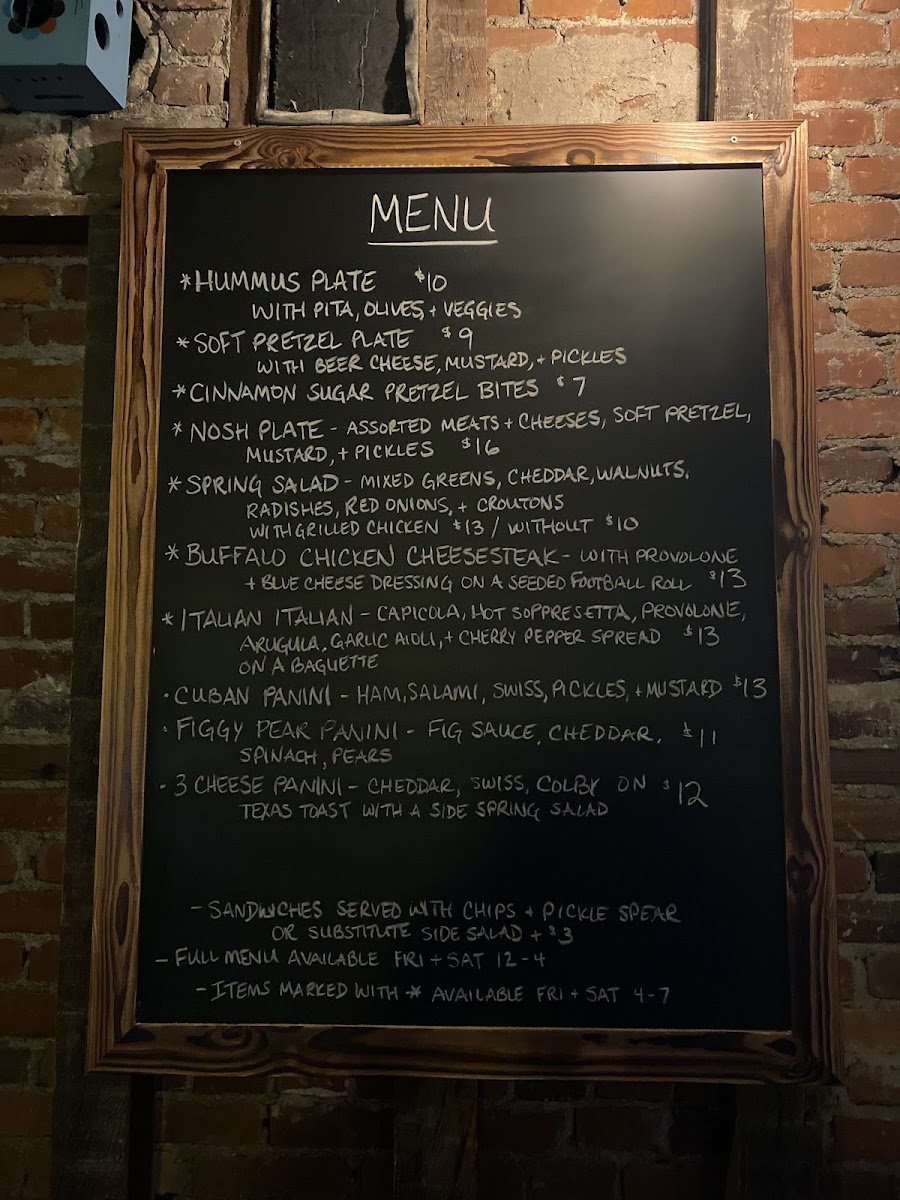 MENU
*HUMMUS PLATE $10
WITH PITA, OLIVES + VEGGIES
*SOFT PRETZEL PLATE $9
WITH BEER CHEESE, MUSTARD, + PICKLES
*CINNAMON SUGAR PRETZEL BITES $7
*NOSH PLATE - ASSORTED MEATS + CHEESES, SOFT PRETZEL,
MUSTARD, + PICKLES $16
*SPRING SALAD - MIXED GREENS, CHEDDAR, WALNUTS,
RADISHES, RED ONIONS, + CROUTONS
WITH GRILLED CHICKEN $13 / WITHOUT $10
*BUFFALO CHICKEN CHEESESTEAK - WITH PROVOLONE
+ BLUE CHEESE DRESSING ON A SEEDED FOOTBALL ROLL $13
*ITALIAN ITALIAN - CAPICOLA, HOT SOPPRESETTA, PROVOLONE,
ARUGULA, GARLIC AIOLI, + CHERRY PEPPER SPREAD $13
ON A BAGUETTE
• CUBAN PANINI - HAM, SALAMI, SWISS, PICKLES, + MUSTARD $13
• FIGGY PEAR PANINI - FIG SAUCE, CHEDDAR, $11
SPINACH, PEARS
• 3 CHEESE PANINI - CHEDDAR, SWISS, COLBY ON $12
TEXAS TOAST WITH A SIDE SPRING SALAD
- SANDWICHES SERVED WITH CHIPS + PICKLE SPEAR
OR SUBSTITUTE SIDE SALAD + $3
- FULL MENU AVAILABLE FRI + SAT 12-4
- ITEMS MARKED WITH * AVAILABLE FRI + SAT 4-7